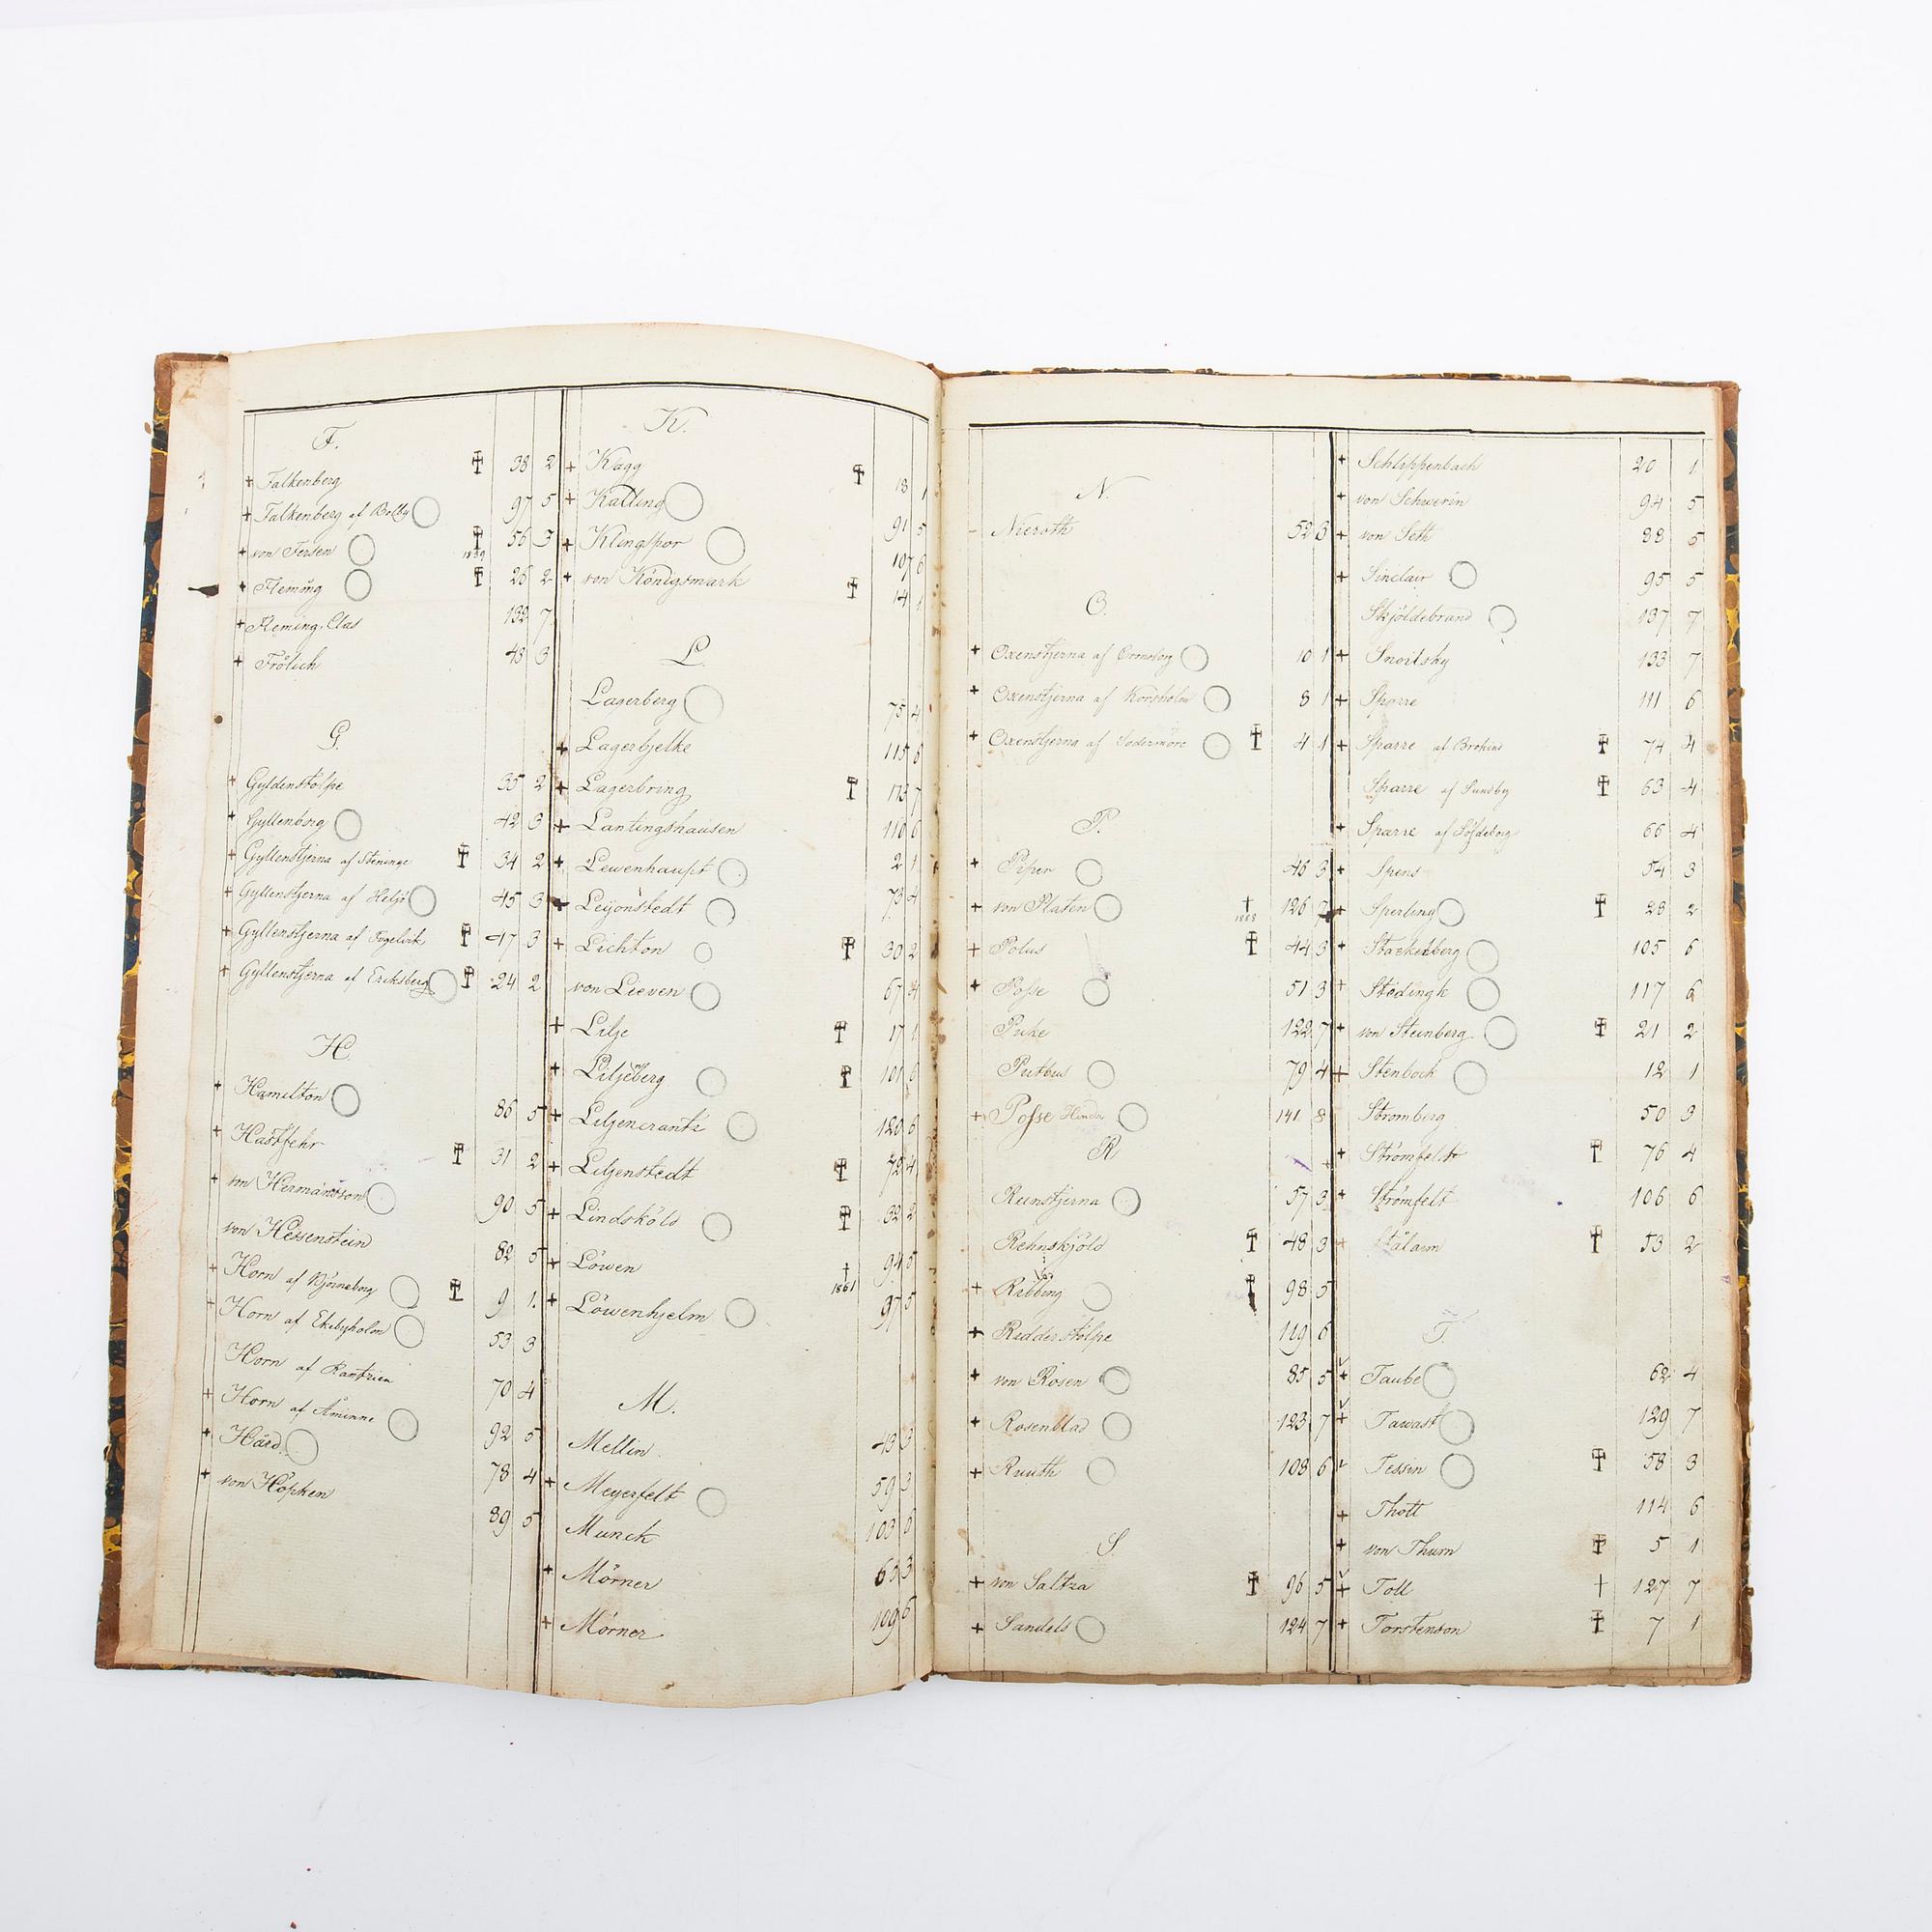 F.
+ Falkenberg 38 2
+ Falkenberg af Bålby 97 5
+ von Fersen 1839 56 3
+ Fleming 26 2
+ Fleming, Clas 132 7
+ Frölich 43 3
G.
+ Gyldenstolpe 35 2
+ Gyllenborg 42 3
+ Gyllenstjerna af Steninge 34 2
+ Gyllenstjerna af Heljö 45 3
+ Gyllenstjerna af Fogelvik 47 3
+ Gyllenstjerna af Eriksberg 24 2
H.
+ Hamilton 86 5
+ Hastfehr 31 2
+ von Hermansson 90 5
von Hessenstein 82 5
+ Horn af Björneborg 9 1.
+ Horn af Ekebyholm 53 3
Horn af Rantzien 70 4
+ Horn af Åminne 92 5
+ Hård 78 4
+ von Höpken 89 5
K.
+ Kagg 18 1
+ Kalling 91 5
+ Klingspor 107 6
+ von Königsmark 14 1
L.
Lagerberg 75 4
+ Lagerbjelke 115 6
+ Lagerbring 7
+ Lantingshausen 110 6
+ Lewenhaupt 2 1
+ Leijonstedt 73 4
+ Lichton 30 2
von Lieven 67 4
+ Lilje 17 1
+ Liljeberg 101 6
+ Liljencrantz 120 6
+ Liljenstedt 72 4
+ Lindsköld 32 2
+ Löwen † 1861 94 5
+ Löwenhjelm 97 5
M.
Mellin 43 3
+ Meyerfelt 59 3
Munck 103 6
+ Mörner 63 3
+ Mörner 109 6
N.
- Nieroth 52 3
O.
+ Oxenstjerna af Croneborg 10 1
+ Oxenstjerna af Korsholm 8 1
+ Oxenstjerna af Södermöre 4 1
P.
+ Piper 46 3
+ von Platen † 1868 126 7
+ Polus 44 3
+ Posse 51 3
Puke 122 7
Putbus 79 4
+ Posse 141 8
R
Reenstjerna 57 3
Rehnskjöld 48 3
+ Ribbing 98 5
+ Ridderstolpe 119 6
+ von Rosen 85 5
+ Rosenblad 123 7
+ Ruuth 108 6
S.
+ von Saltza 96 5
+ Sandels 124 7
+ Schlippenbach 20 1
+ von Schwerin 94 5
+ von Seth 88 5
+ Sinclair 95 5
Skjöldebrand 137 7
+ Snoilsky 133 7
+ Sparre 111 6
+ Sparre 74 4
Sparre af Sundby 63 4
+ Sparre af Söfdeborg 66 4
+ Spens 54 3
+ Sperling 28 2
+ Stackelberg 105 6
+ Stedingk 117 6
+ von Steinberg 21 2
+ Stenbock 12 1
Stromberg 50 3
+ Strömfeltt 76 4
+ Strömfelt 106 6
+ Stålarm 33 2
T.
+ Taube 62 4
+ Tawast 129 7
Tessin 58 3
+ Thott 114 6
+ von Thurn 5 1
+ Toll † 127 7
+ Torstenson 7 1